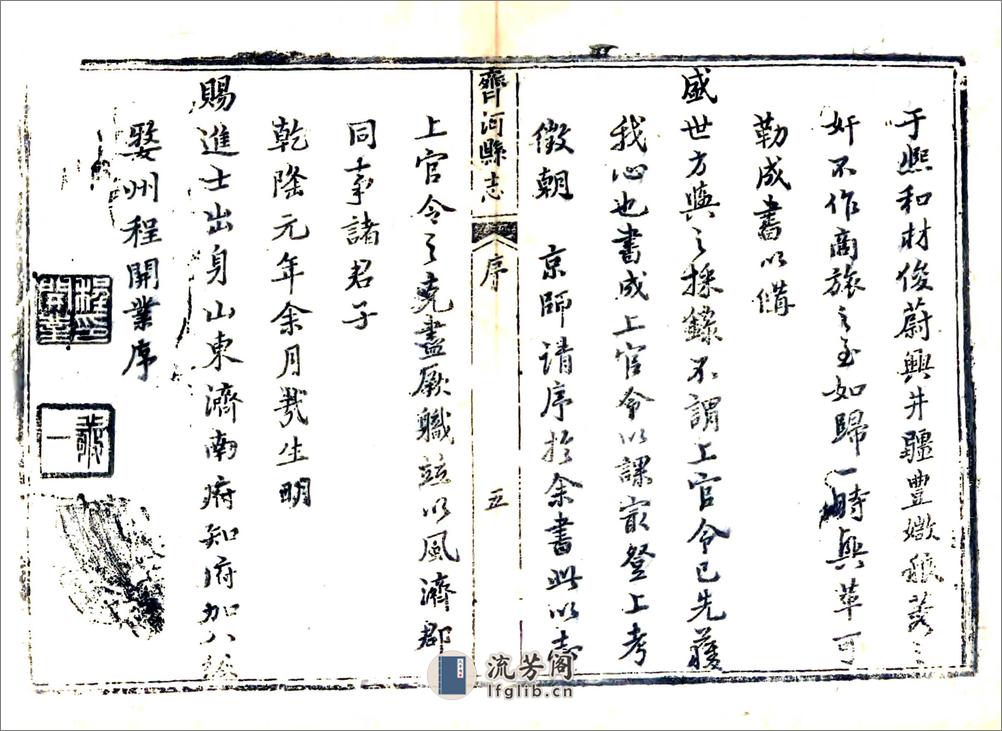 于熙和材俊蔚興井疆豐
奸不作商旅之至如歸一時興革可
勒成書以備
盛世方輿之採錄不謂上官令已先獲
我心也書成上官令以課最登上考
徵朝 京師請序於余書此以志
齊河縣志 序 五
上官令之克盡厥職並以風濟郡
同事諸君子
乾隆元年余月哉生明
賜進士出身山東濟南府知府加八級
婺州程開業序
程開業印
流芳阁
lfglib.cn